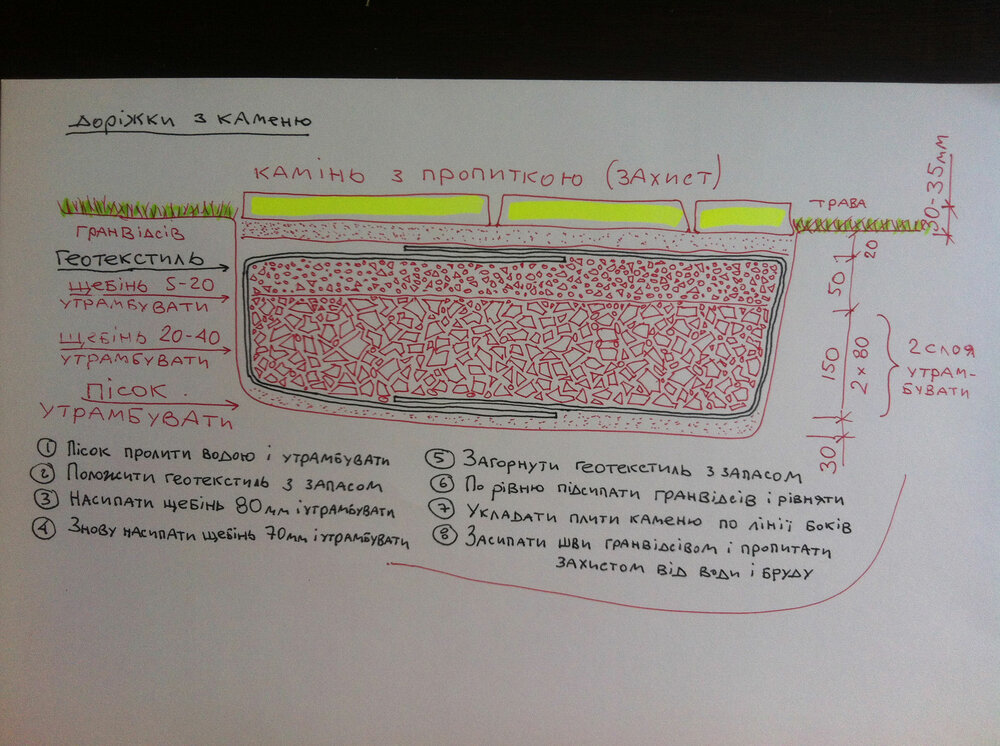 Доріжки з каменю
камінь з пропиткою (захист)
30-35мм
трава
гранвідсів
20
Геотекстиль
50
щебінь 5-20
утрамбувати
щебінь 20-40
утрамбувати
150
2 x 80
2 слоя
утрам-
бувати
пісок
утрамбувати
30
1 Пісок пролити водою і утрамбувати
2 Положити геотекстиль з запасом
3 Насипати щебінь 80мм і утрамбувати
4 Знову насипати щебінь 70мм і утрамбувати
5 Загорнути геотекстиль з запасом
6 По рівню підсипати гранвідсів і рівняти
7 Укладати плити каменю по лінії боків
8 Засипати шви гранвідсівом і пропитати
захистом від води і бруду